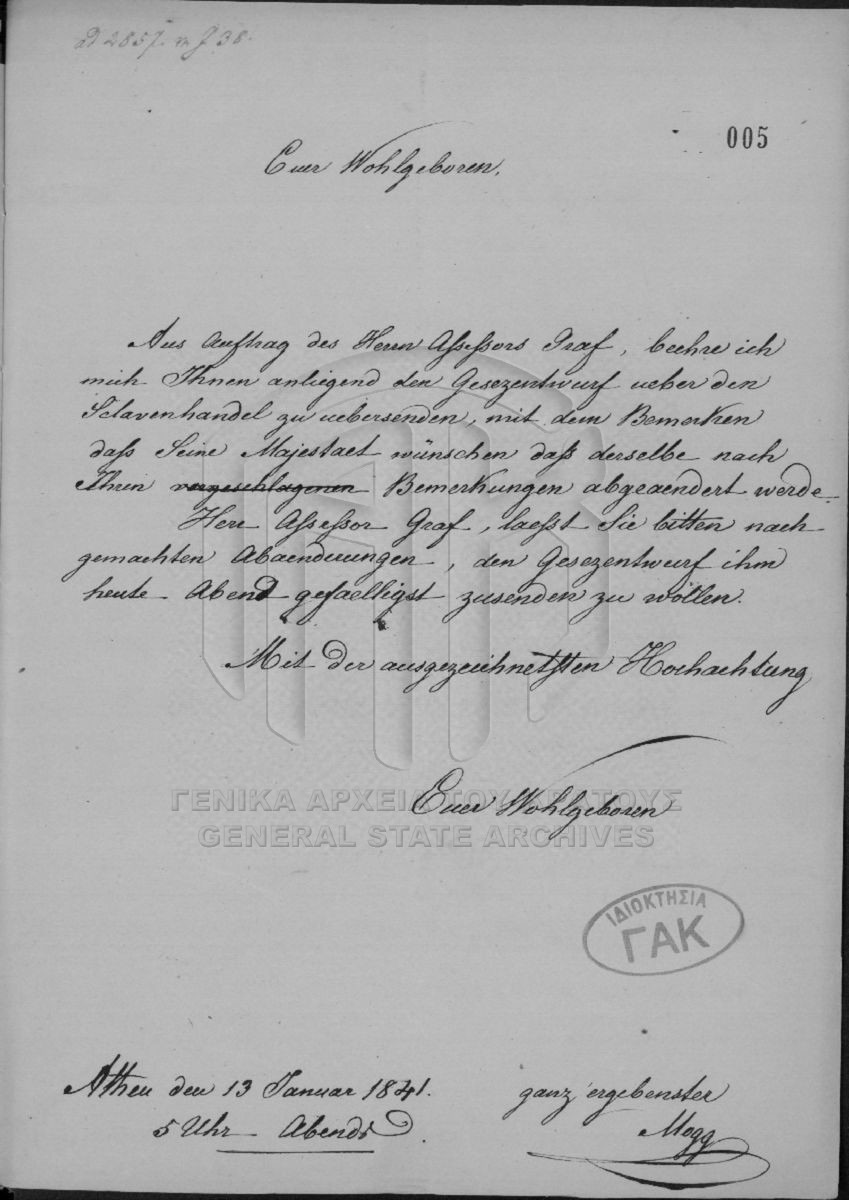 ad 2857. 
005
Euer Wohlgeboren,
Aus Auftrag des Herrn Assessors Graf, beehre ich
mich Ihnen anliegend den Gesezentwurf ueber den
Sclavenhandel zu uebersenden, mit dem Bemerken
daß Seine Majestaet wünschen daß derselbe nach
Ihren vorgeschlagenen Bemerkungen abgeaendert werde.
Herr Assessor Graf, laesst Sie bitten nach
gemachten Abaenderungen, den Gesezentwurf ihm
heute Abend gefaelligst zusenden zu wollen.
Mit der ausgezeichnetsten Hochachtung
Euer Wohlgeboren
ΓΕΝΙΚΑ ΑΡΧΕΙΑ ΤΟΥ ΚΡΑΤΟΥΣ
GENERAL STATE ARCHIVES
ΙΔΙΟΚΤΗΣΙΑ
ΓΑΚ
Athen den 13 Januar 1841.
ganz ergebenster
5 Uhr Abends
Mogg